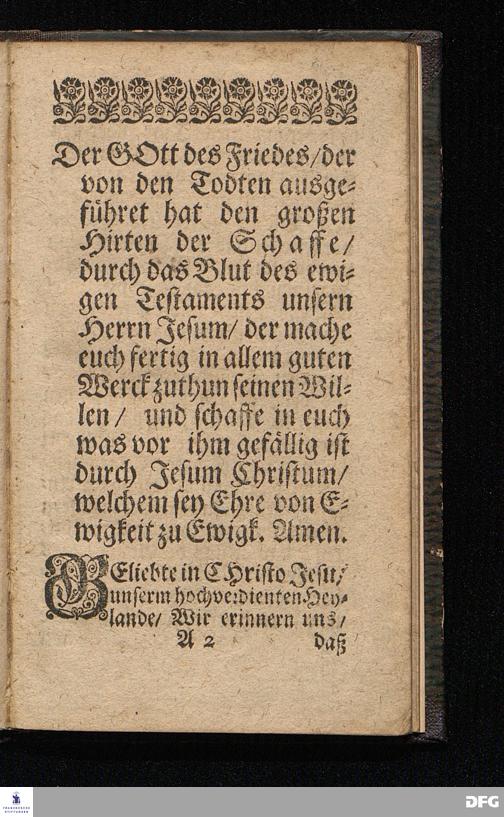 Der GOtt des Friedes/der
von den Todten ausge-
führet hat den großen
Hirten der Schaffe/
durch das Blut des ewi-
gen Testaments unsern
Herrn Jesum/ der mache
euch fertig in allem guten
Werck zuthun seinen Wil-
len/ und schaffe in euch
was vor ihm gefällig ist
durch Jesum Christum/
welchem sey Ehre von E-
wigkeit zu Ewigk. Amen.
GEliebte in CHristo Jesu/
unserm hochverdienten Hey-
lande/ Wir erinnern uns/
A 2 daß
FRANCKESCHE
STIFTUNGEN
DFG